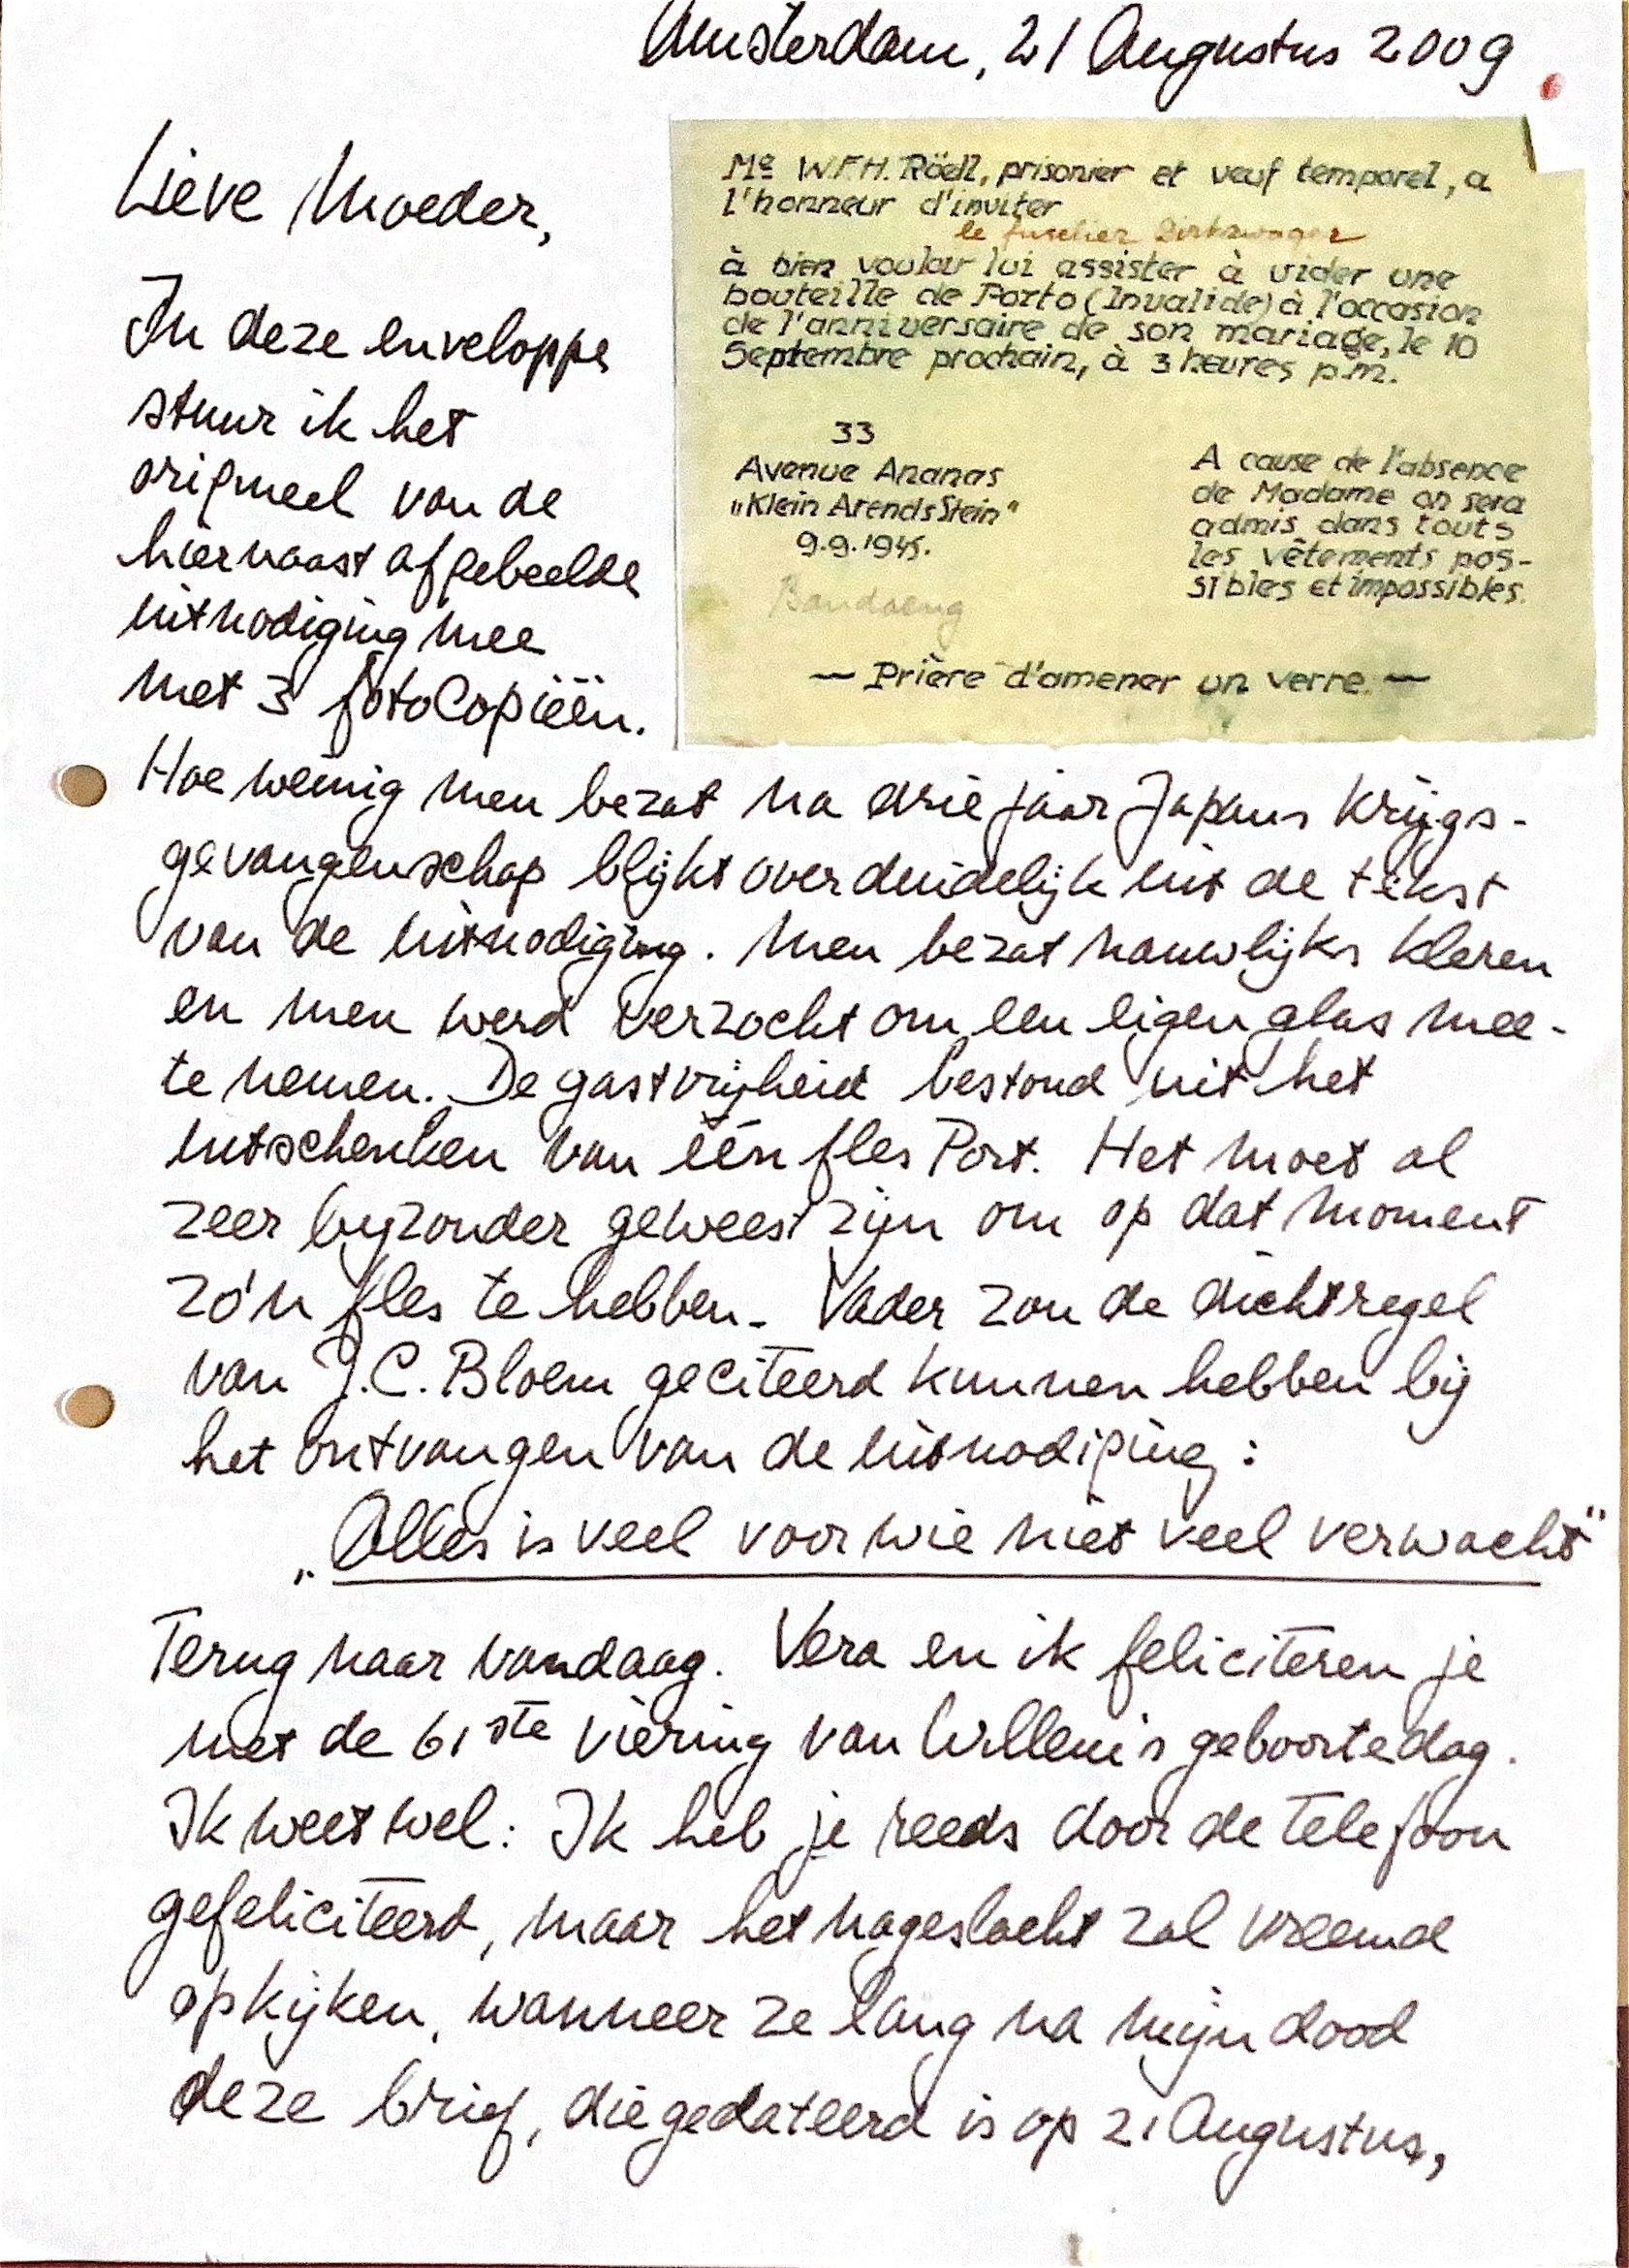 Amsterdam, 21 Augustus 2009
Lieve Moeder,
In deze enveloppe
stuur ik het
origineel van de
hiernaast afgebeelde
uitnodiging mee
met 3 fotocopieën.
Mr W.F.H. Röell, prisonier et veuf temporel, a
l'honneur d'inviter
le fuselier Dirkzwager
à bien vouloir lui assister à vider une
bouteille de Porto (Invalide) à l'occasion
de l'anniversaire de son mariage, le 10
Septembre prochain, à 3 heures p.m.
33
Avenue Ananas
„Klein ArendsStein"
9.9.1945.
Bandoeng
A cause de l'absence
de Madame on sera
admis dans touts
les vêtements pos-
sibles et impossibles.
— Prière d'amener un verre. —
Hoe weinig men bezat na drie jaar Japans krijgs-
gevangenschap blijkt overduidelijk uit de tekst
van de uitnodiging. Men bezat nauwlijks kleren
en men werd verzocht om een eigen glas mee-
te nemen. De gastvrijheid bestond uit het
uitschenken van één fles Port. Het moet al
zeer byzonder geweest zijn om op dat moment
zo'n fles te hebben. Vader zou de dichtregel
van J.C. Bloem geciteerd kunnen hebben bij
het ontvangen van de uitnodiging:
„Alles is veel voor wie niet veel verwacht"
Terug naar vandaag. Vera en ik feliciteren je
met de 61ste viering van Willem's geboortedag.
Ik weet wel: Ik heb je reeds door de telefoon
gefeliciteerd, maar het nageslacht zal vreemd
opkijken, wanneer ze lang na mijn dood
deze brief, die gedateerd is op 21 Augustus,